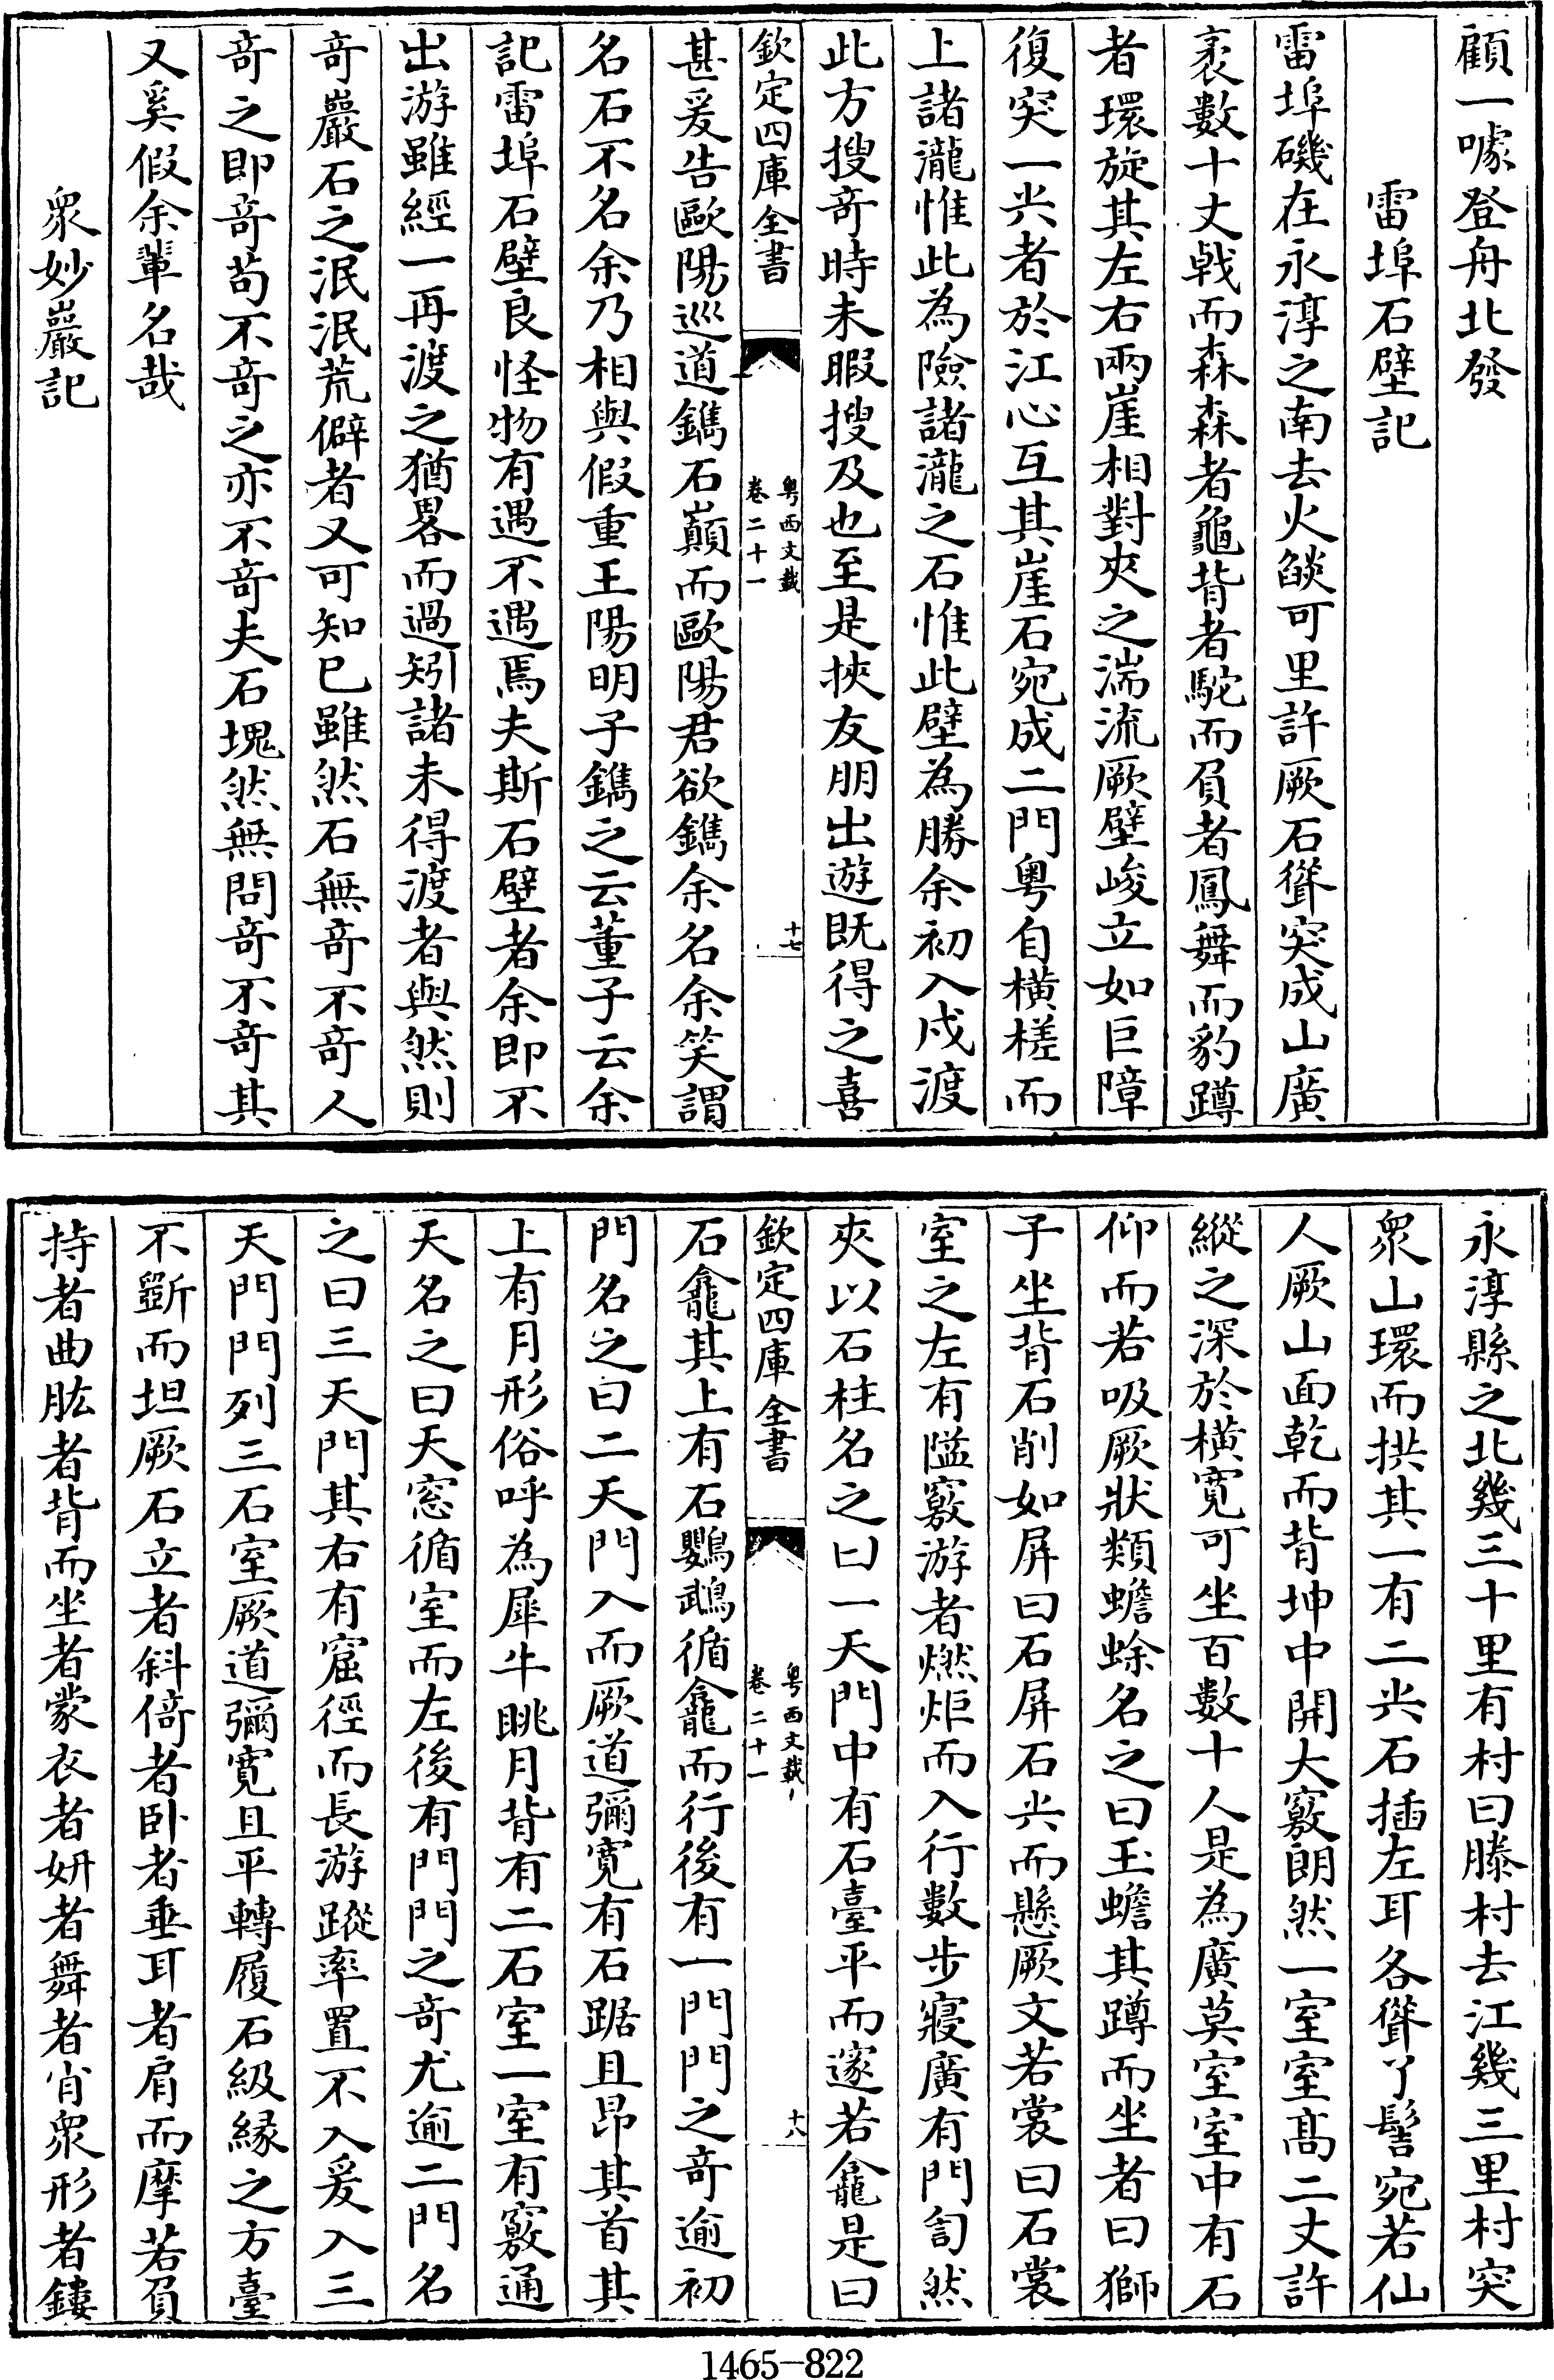 顧一噱登舟北發
雷埠石壁記
雷埠磯在永淳之南去火燄可里許厥石聳突成山廣
袤數十丈戟而森森者龜背者駝而負者鳳舞而豹蹲
者環旋其左右兩崖相對夾之湍流厥壁峻立如巨障
復突一尖者於江心互其崖石宛成二門粤自橫槎而
上諸瀧惟此為險諸瀧之石惟此壁為勝余初入戍渡
此方搜竒時未暇搜及也至是挾友朋出遊既得之喜
欽定四庫全書
粤西文載
卷二十一
十七
甚爰告歐陽巡道鐫石巔而歐陽君欲鐫余名余笑謂
名石不名余乃相與假重王陽明子鐫之云董子云余
記雷埠石壁良怪物有遇不遇焉夫斯石壁者余即不
出游雖經一再渡之猶畧而過矧諸未得渡者與然則
竒巖石之泯泯荒僻者又可知已雖然石無竒不竒人
竒之即竒苟不竒之亦不竒夫石塊然無問竒不竒其
又奚假余輩名哉
衆妙巖記
永淳縣之北幾三十里有村曰滕村去江幾三里村突
衆山環而拱其一有二尖石插左耳各聳丫髻宛若仙
人厥山面乾而背坤中開大竅朗然一室室髙二丈許
縱之深於橫寛可坐百數十人是為廣莫室室中有石
仰而若吸厥狀類蟾蜍名之曰玉蟾其蹲而坐者曰獅
子坐背石削如屏曰石屏石尖而懸厥文若裳曰石裳
室之左有隘竅游者燃炬而入行數步寢廣有門訇然
夾以石柱名之曰一天門中有石臺平而邃若龕是曰
欽定四庫全書
粤西文載
卷二十一
十八
石龕其上有石鸚鵡循龕而行後有一門門之竒逾初
門名之曰二天門入而厥道彌寛有石踞且昂其首其
上有月形俗呼為犀牛眺月背有二石室一室有竅通
天名之曰天窓循室而左後有門門之竒尤逾二門名
之曰三天門其右有窟徑而長游蹤率置不入爰入三
天門門列三石室厥道彌寛且平轉履石級縁之方臺
不斲而坦厥石立者斜倚者卧者垂耳者肩而摩若負
持者曲肱者背而坐者蒙衣者妍者舞者肖衆形者鏤
1465-822